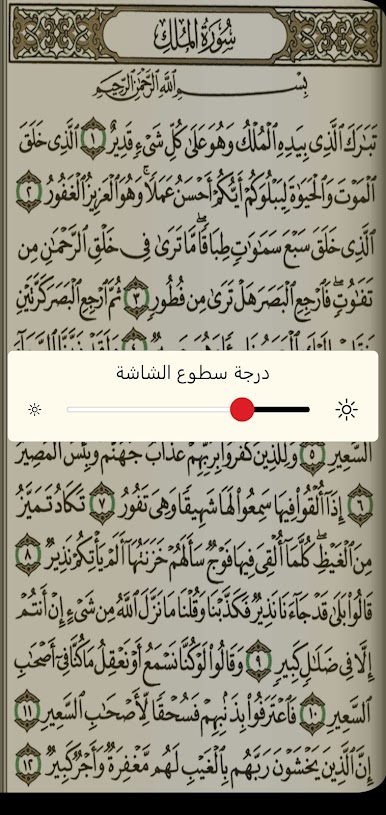 سُورَةُ المُلْكِ
بِسْمِ ٱللَّهِ ٱلرَّحْمَٰنِ ٱلرَّحِيمِ
تَبَٰرَكَ ٱلَّذِى بِيَدِهِ ٱلْمُلْكُ وَهُوَ عَلَىٰ كُلِّ شَىْءٍ قَدِيرٌ ١ ٱلَّذِى خَلَقَ
ٱلْمَوْتَ وَٱلْحَيَوٰةَ لِيَبْلُوَكُمْ أَيُّكُمْ أَحْسَنُ عَمَلًا ۚ وَهُوَ ٱلْعَزِيزُ ٱلْغَفُورُ ٢
ٱلَّذِى خَلَقَ سَبْعَ سَمَٰوَٰتٍ طِبَاقًا ۖ مَّا تَرَىٰ فِى خَلْقِ ٱلرَّحْمَٰنِ مِن
تَفَٰوُتٍ ۖ فَٱرْجِعِ ٱلْبَصَرَ هَلْ تَرَىٰ مِن فُطُورٍ ٣ ثُمَّ ٱرْجِعِ ٱلْبَصَرَ كَرَّتَيْنِ
درجة سطوع الشاشة
ٱلسَّعِيرِ ٥ وَلِلَّذِينَ كَفَرُوا۟ بِرَبِّهِمْ عَذَابُ جَهَنَّمَ ۖ وَبِئْسَ ٱلْمَصِيرُ
٦ إِذَآ أُلْقُوا۟ فِيهَا سَمِعُوا۟ لَهَا شَهِيقًا وَهِىَ تَفُورُ ٧ تَكَادُ تَمَيَّزُ
مِنَ ٱلْغَيْظِ ۖ كُلَّمَآ أُلْقِىَ فِيهَا فَوْجٌ سَأَلَهُمْ خَزَنَتُهَآ أَلَمْ يَأْتِكُمْ نَذِيرٌ ٨
قَالُوا۟ بَلَىٰ قَدْ جَآءَنَا نَذِيرٌ فَكَذَّبْنَا وَقُلْنَا مَا نَزَّلَ ٱللَّهُ مِن شَىْءٍ إِنْ أَنتُمْ
إِلَّا فِى ضَلَٰلٍ كَبِيرٍ ٩ وَقَالُوا۟ لَوْ كُنَّا نَسْمَعُ أَوْ نَعْقِلُ مَا كُنَّا فِىٓ أَصْحَٰبِ
ٱلسَّعِيرِ ١٠ فَٱعْتَرَفُوا۟ بِذَنۢبِهِمْ فَسُحْقًا لِّأَصْحَٰبِ ٱلسَّعِيرِ ١١
إِنَّ ٱلَّذِينَ يَخْشَوْنَ رَبَّهُم بِٱلْغَيْبِ لَهُم مَّغْفِرَةٌ وَأَجْرٌ كَبِيرٌ ١٢